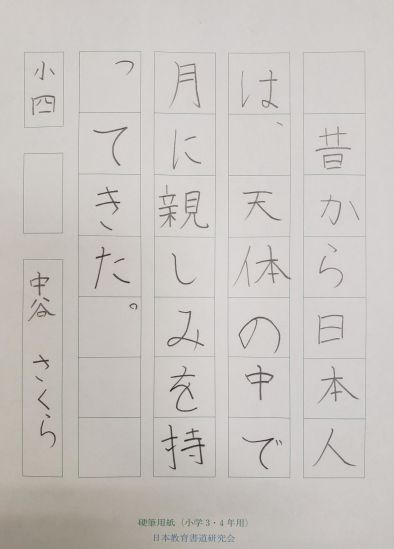 昔から日本人
は、天体の中で
月に親しみを持
ってきた。
小四
中谷 さくら
硬筆用紙（小学3・4年用）
日本教育書道研究会